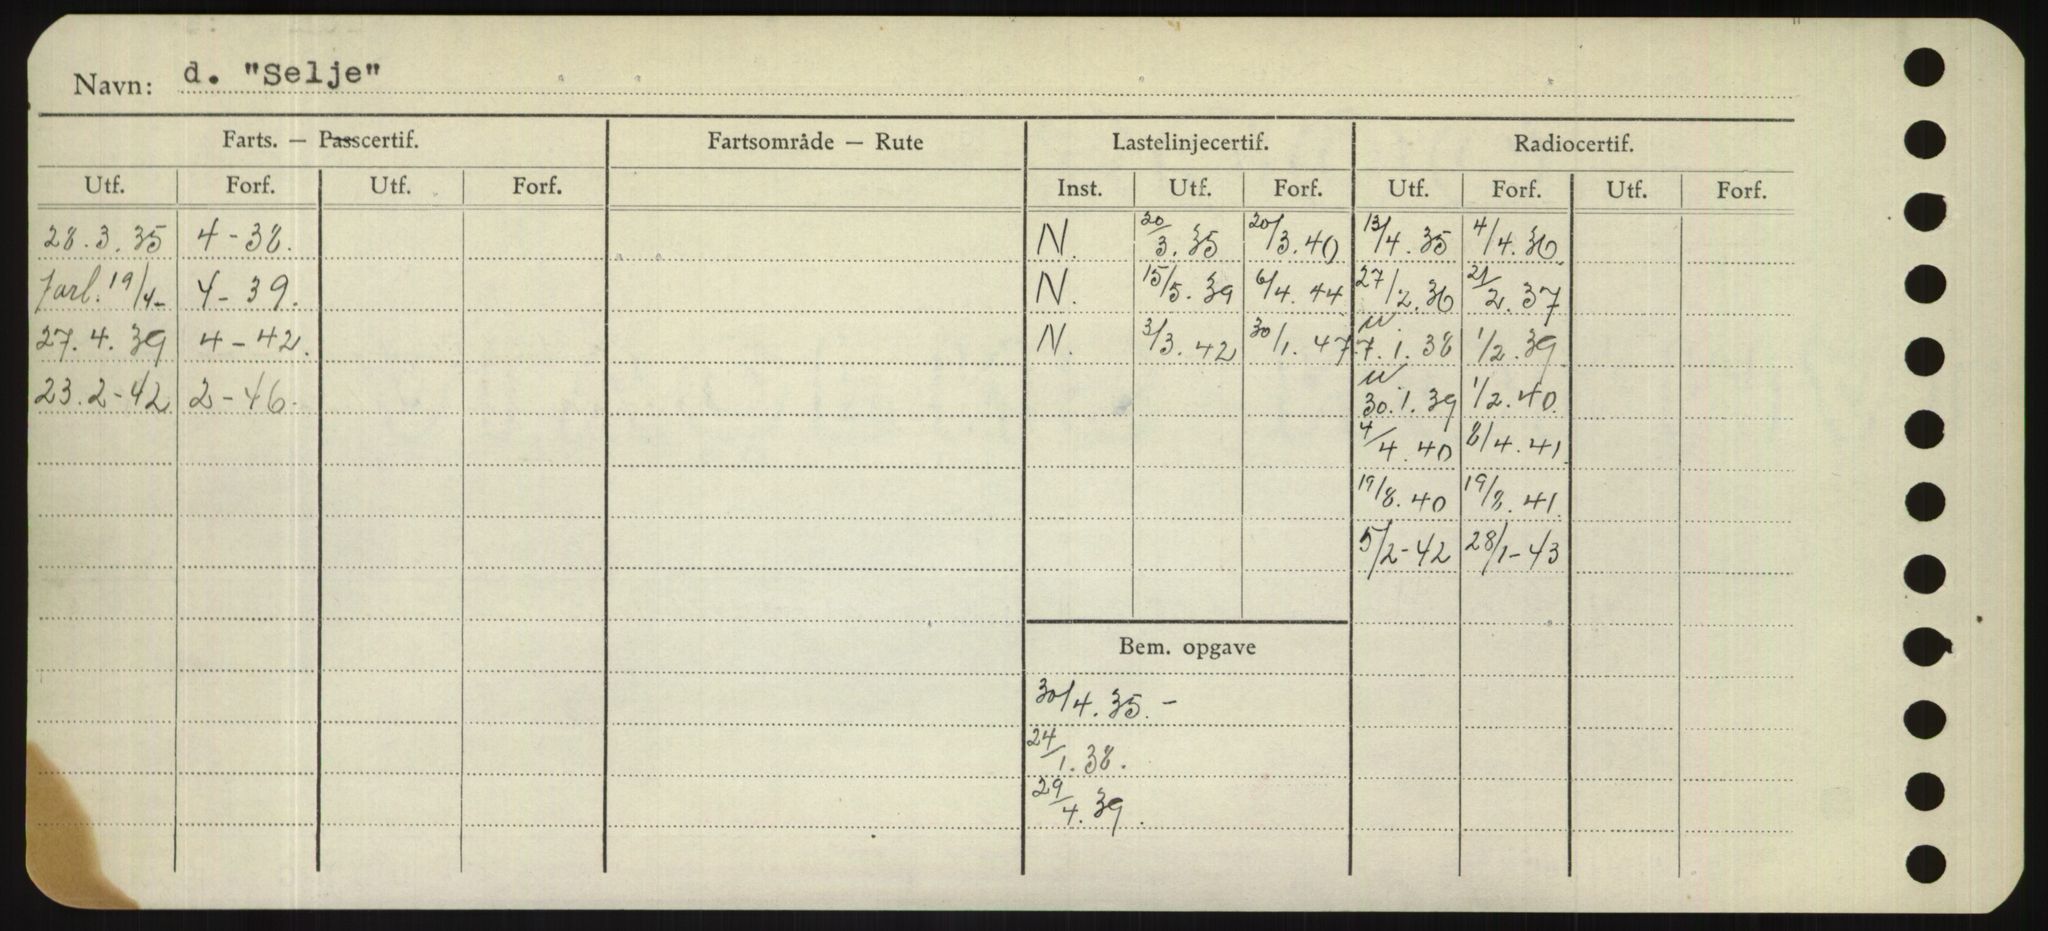 Navn: d. "Selje"
Farts. — Passcertif. Fartsområde — Rute Lastelinjecertif. Radiocertif.
Utf. Forf. Utf. Forf. Inst. Utf. Forf. Utf. Forf. Utf. Forf.
28.3.35 4-38. N. 20/3.35 20/3.40 13/4.35 4/4.36
forl. 19/4- 4-39. N. 15/5.39 6/4.44 27/2.36 21/2.37
27.4.39 4-42. N. 3/3.42 30/1.47 7.1.38 1/2.39
23.2-42 2-46. 30.1.39 1/2.40
4/4.40 8/4.41
19/8.40 19/8.41
5/2-42 28/1-43
Bem. opgave
30/4.35.-
24/1.38.
29/4.39.